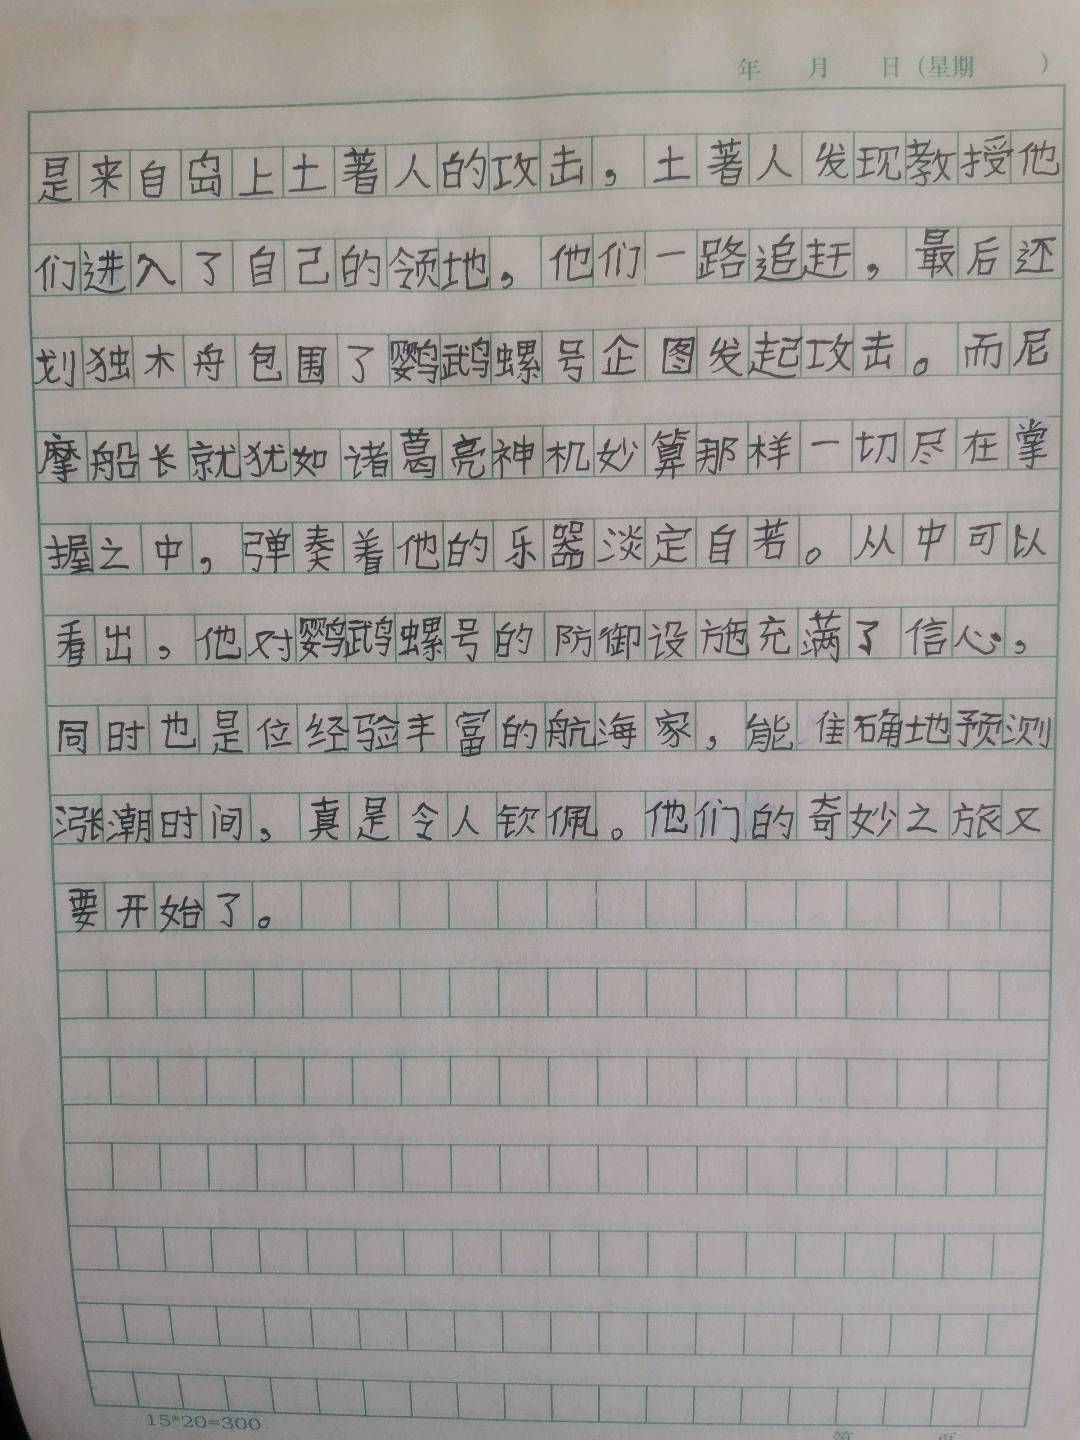 年 月 日（星期 ）
是来自岛上土著人的攻击，土著人发现教授他
们进入了自己的领地，他们一路追赶，最后还
划独木舟包围了鹦鹉螺号企图发起攻击。而尼
摩船长就犹如诸葛亮神机妙算那样一切尽在掌
握之中，弹奏着他的乐器淡定自若。从中可以
看出，他对鹦鹉螺号的防御设施充满了信心，
同时也是位经验丰富的航海家，能准确地预测
涨潮时间，真是令人钦佩。他们的奇妙之旅又
要开始了。
15*20=300
第 页